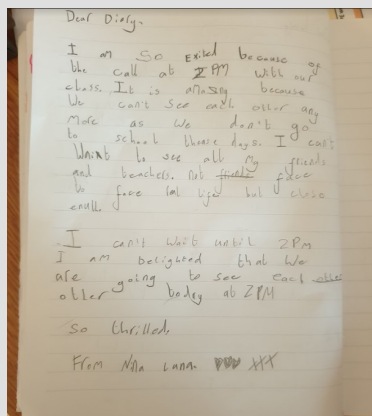 Dear Diary.
I am so exited because of
the call at 2PM with our
class. It is amazing because
We can't see each other any
more as we don't go
to school these days. I can't
Waist to see all my friends
and teachers. not friends face
to face real life but close
enull.
I can't wait until 2PM
I am belighted that we
are going to see each other
otler today at 2PM
So thrilled,
From Nina